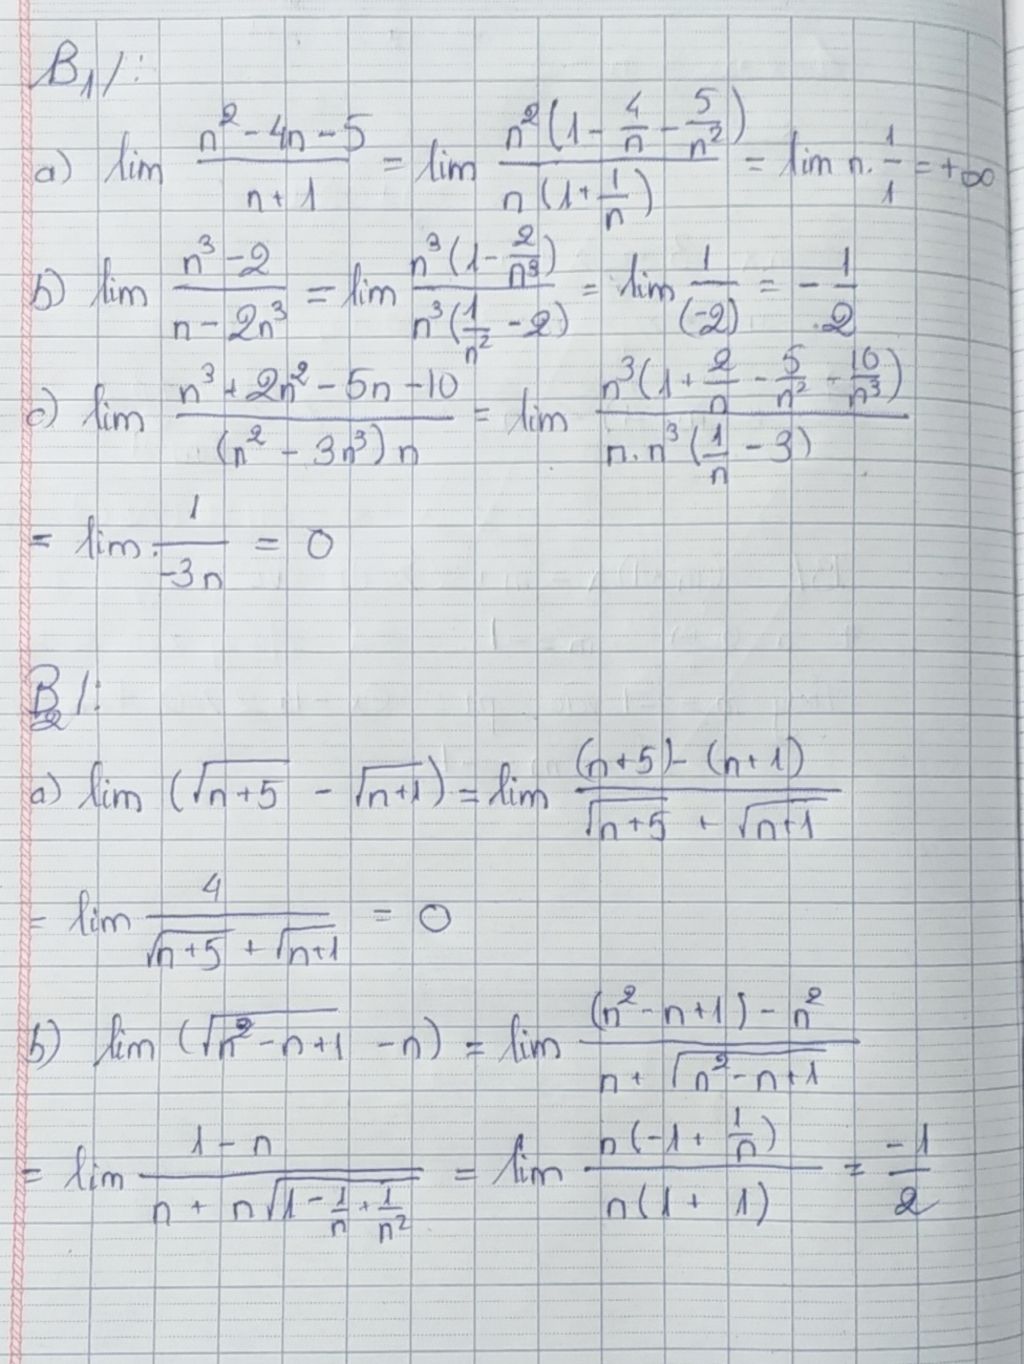 B₁/:
a) lim (n² - 4n - 5)/(n + 1) = lim (n²(1 - 4/n - 5/n²))/(n(1 + 1/n)) = lim n. 1/1 = +∞
b) lim (n³ - 2)/(n - 2n³) = lim (n³(1 - 2/n³))/(n³(1/n² - 2)) = lim 1/(-2) = - 1/2
c) lim (n³ + 2n² - 5n - 10)/((n² - 3n³)n) = lim (n³(1 + 2/n - 5/n² - 10/n³))/(n.n³(1/n - 3))
= lim 1/(-3n) = 0
B₂/:
a) lim (√(n+5) - √(n+1)) = lim ((n+5) - (n+1))/(√(n+5) + √(n+1))
= lim 4/(√(n+5) + √(n+1)) = 0
b) lim (√(n² - n + 1) - n) = lim ((n² - n + 1) - n²)/(n + √(n² - n + 1))
= lim (1 - n)/(n + n√(1 - 1/n + 1/n²)) = lim (n(-1 + 1/n))/(n(1 + 1)) = -1/2